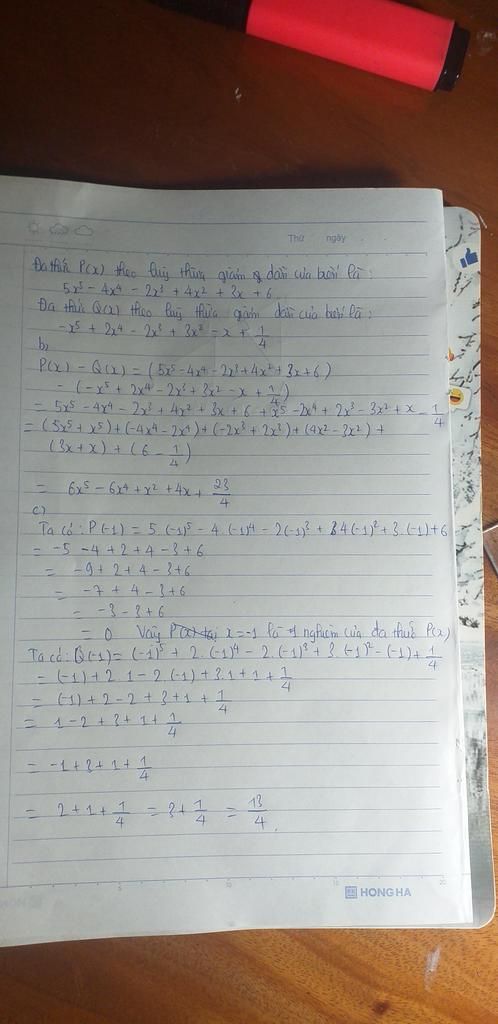 Thứ ngày
Đa thức P(x) theo luỹ thừa giảm dần của biến là:
5x⁵ - 4x⁴ - 2x³ + 4x² + 3x + 6
Đa thức Q(x) theo luỹ thừa giảm dần của biến là:
-x⁵ + 2x⁴ - 2x³ + 3x² - x + 1/4
b,
P(x) - Q(x) = (5x⁵ - 4x⁴ - 2x³ + 4x² + 3x + 6)
- (-x⁵ + 2x⁴ - 2x³ + 3x² - x + 1/4)
= 5x⁵ - 4x⁴ - 2x³ + 4x² + 3x + 6 + x⁵ - 2x⁴ + 2x³ - 3x² + x - 1/4
= (5x⁵ + x⁵) + (-4x⁴ - 2x⁴) + (-2x³ + 2x³) + (4x² - 3x²) +
(3x + x) + (6 - 1/4)
= 6x⁵ - 6x⁴ + x² + 4x + 23/4
c,
Ta có: P(-1) = 5.(-1)⁵ - 4.(-1)⁴ - 2(-1)³ + 4(-1)² + 3.(-1) + 6
= -5 - 4 + 2 + 4 - 3 + 6
= -9 + 2 + 4 - 3 + 6
= -7 + 4 - 3 + 6
= -3 - 3 + 6
= 0 Vậy x = -1 là nghiệm của đa thức P(x)
Ta có: Q(-1) = (-1)⁵ + 2.(-1)⁴ - 2.(-1)³ + 3.(-1)² - (-1) + 1/4
= (-1) + 2.1 - 2.(-1) + 3.1 + 1 + 1/4
= (-1) + 2 - 2 + 3 + 1 + 1/4
= 1 - 2 + 3 + 1 + 1/4
= -1 + 3 + 1 + 1/4
= 2 + 1 + 1/4 = 3 + 1/4 = 13/4.
5 10 15 20
HONG HA